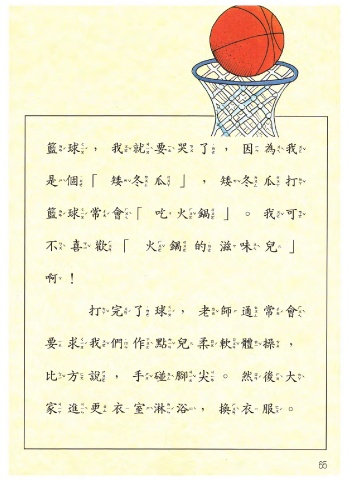 籃球，我就要哭了，因為我
是個「矮冬瓜」，矮冬瓜打
籃球常會「吃火鍋」。我可
不喜歡「火鍋的滋味兒」
啊！
打完了球，老師通常會
要求我們作點兒柔軟體操，
比方說，手碰腳尖。然後大
家進更衣室淋浴，換衣服。
65